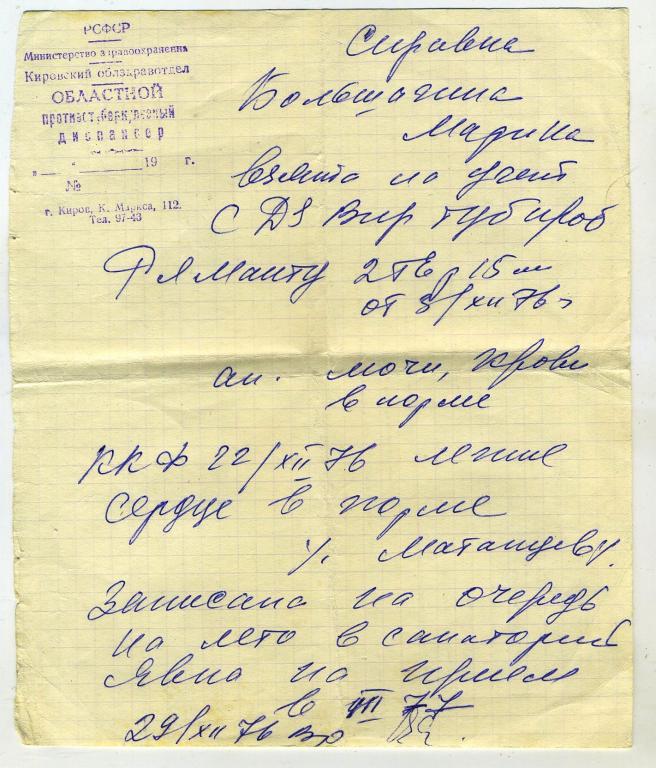 РСФСР
Министерство здравоохранения
Кировский облздравотдел
ОБЛАСТНОЙ
противотуберкулезный
диспансер
„ “ 19 г.
№
г. Киров, К. Маркса, 112.
Тел. 97-43
Справка
Большагина
Марина
взята на учет
с DS Вир туб
Р-я Манту 2ТЕ, 15 мм
от 3/XII 76 г
ан. мочи, крови
в норме
ККФ 22/XII 76 легкие
сердце в норме
Записана на очередь
на лето в санаторий
Явка на прием
в III 77
29/XII 76 Вр